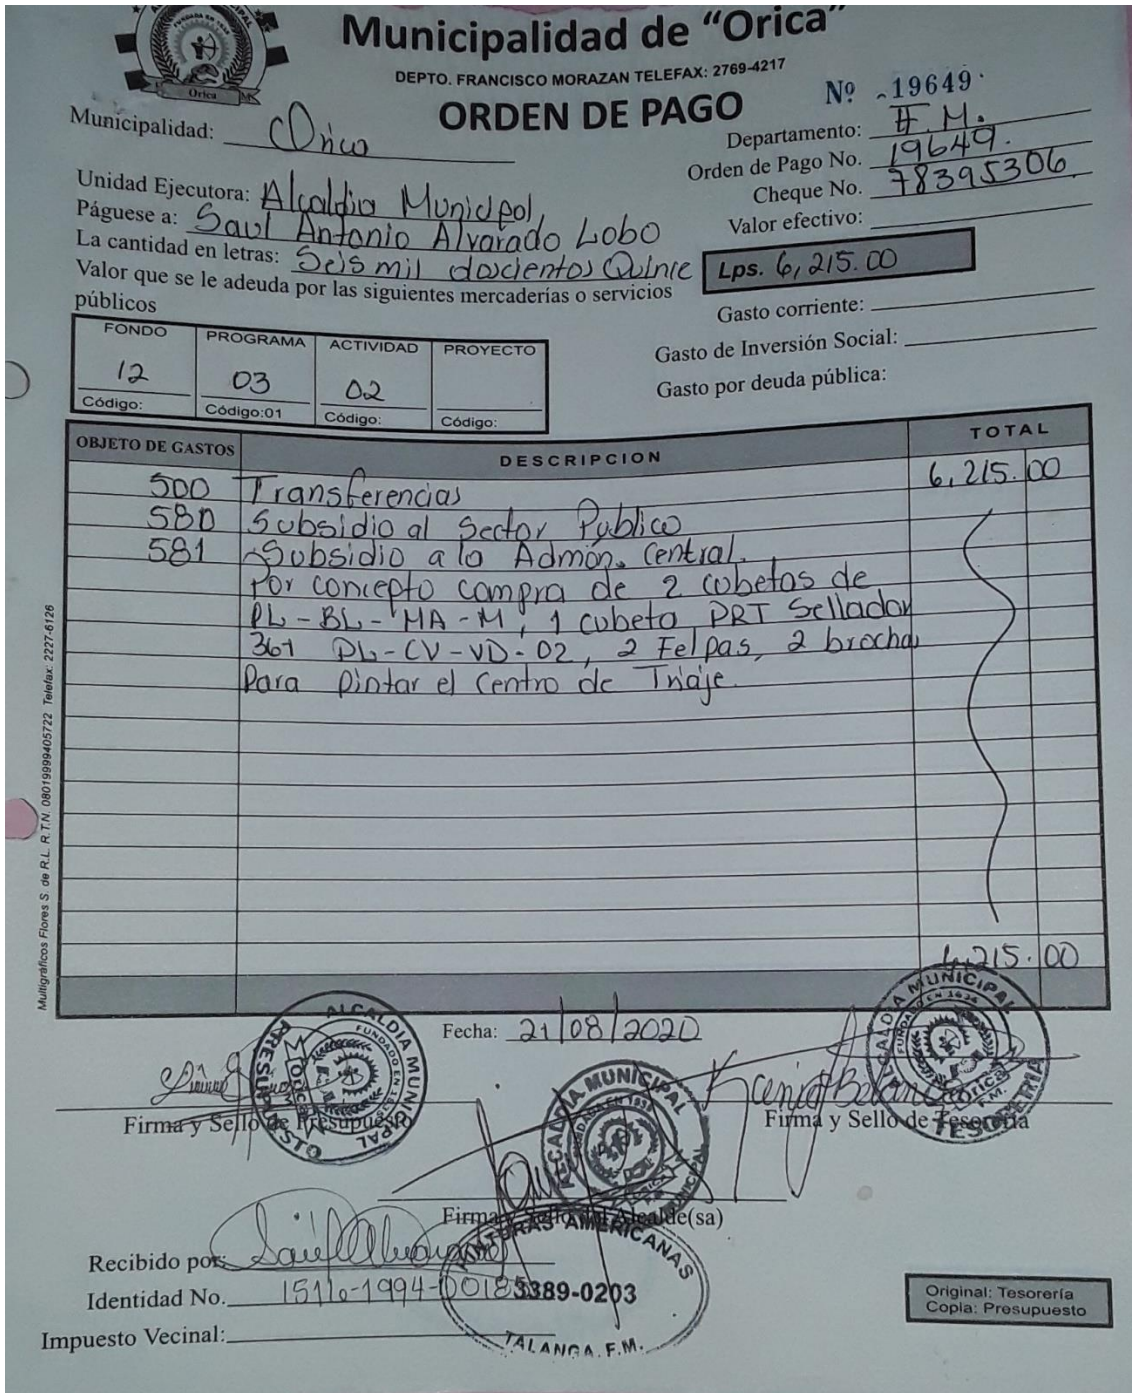 Orica
Municipalidad de "Orica"
DEPTO. FRANCISCO MORAZAN TELEFAX: 2769-4217
ORDEN DE PAGO
Nº 19649
Municipalidad: Orica
Departamento: F.M.
Orden de Pago No. 19649.
Cheque No. 78395306
Valor efectivo:
Unidad Ejecutora: Alcaldia Municipal
Páguese a: Saul Antonio Alvarado Lobo
La cantidad en letras: Seis mil doscientos Quince
Lps. 6,215.00
Valor que se le adeuda por las siguientes mercaderías o servicios
públicos
Gasto corriente:
Gasto de Inversión Social:
Gasto por deuda pública:
FONDO PROGRAMA ACTIVIDAD PROYECTO
12 03 02
Código: Código:01 Código: Código:
OBJETO DE GASTOS DESCRIPCION TOTAL
500 Transferencias 6,215.00
580 Subsidio al Sector Publico
581 Subsidio a la Admón. Central.
Por concepto compra de 2 cubetas de
PL-BL-MA-M, 1 cubeta PRT Sellador
361 PL-CV-VD-02, 2 Felpas, 2 brocha
Para pintar el Centro de Triaje.
6,215.00
Multigráficos Flores S. de R.L. R.T.N. 08019999405722 Telefax: 2227-6126
Fecha: 21/08/2020
ALCALDIA MUNICIPAL
FUNDADO EN
Orica
PRESUPUESTO
Firma y Sello de Presupuesto
ALCALDIA MUNICIPAL
Orica
F.M.
TESORERIA
Firma y Sello de Tesorería
ALCALDIA MUNICIPAL
Firma y Sello del Alcalde(sa)
Recibido por: Saúl Alvarado
Identidad No. 1516-1994-00185
Impuesto Vecinal:
PINTURAS AMERICANAS
3389-0203
TALANGA, F.M.
Original: Tesorería
Copia: Presupuesto